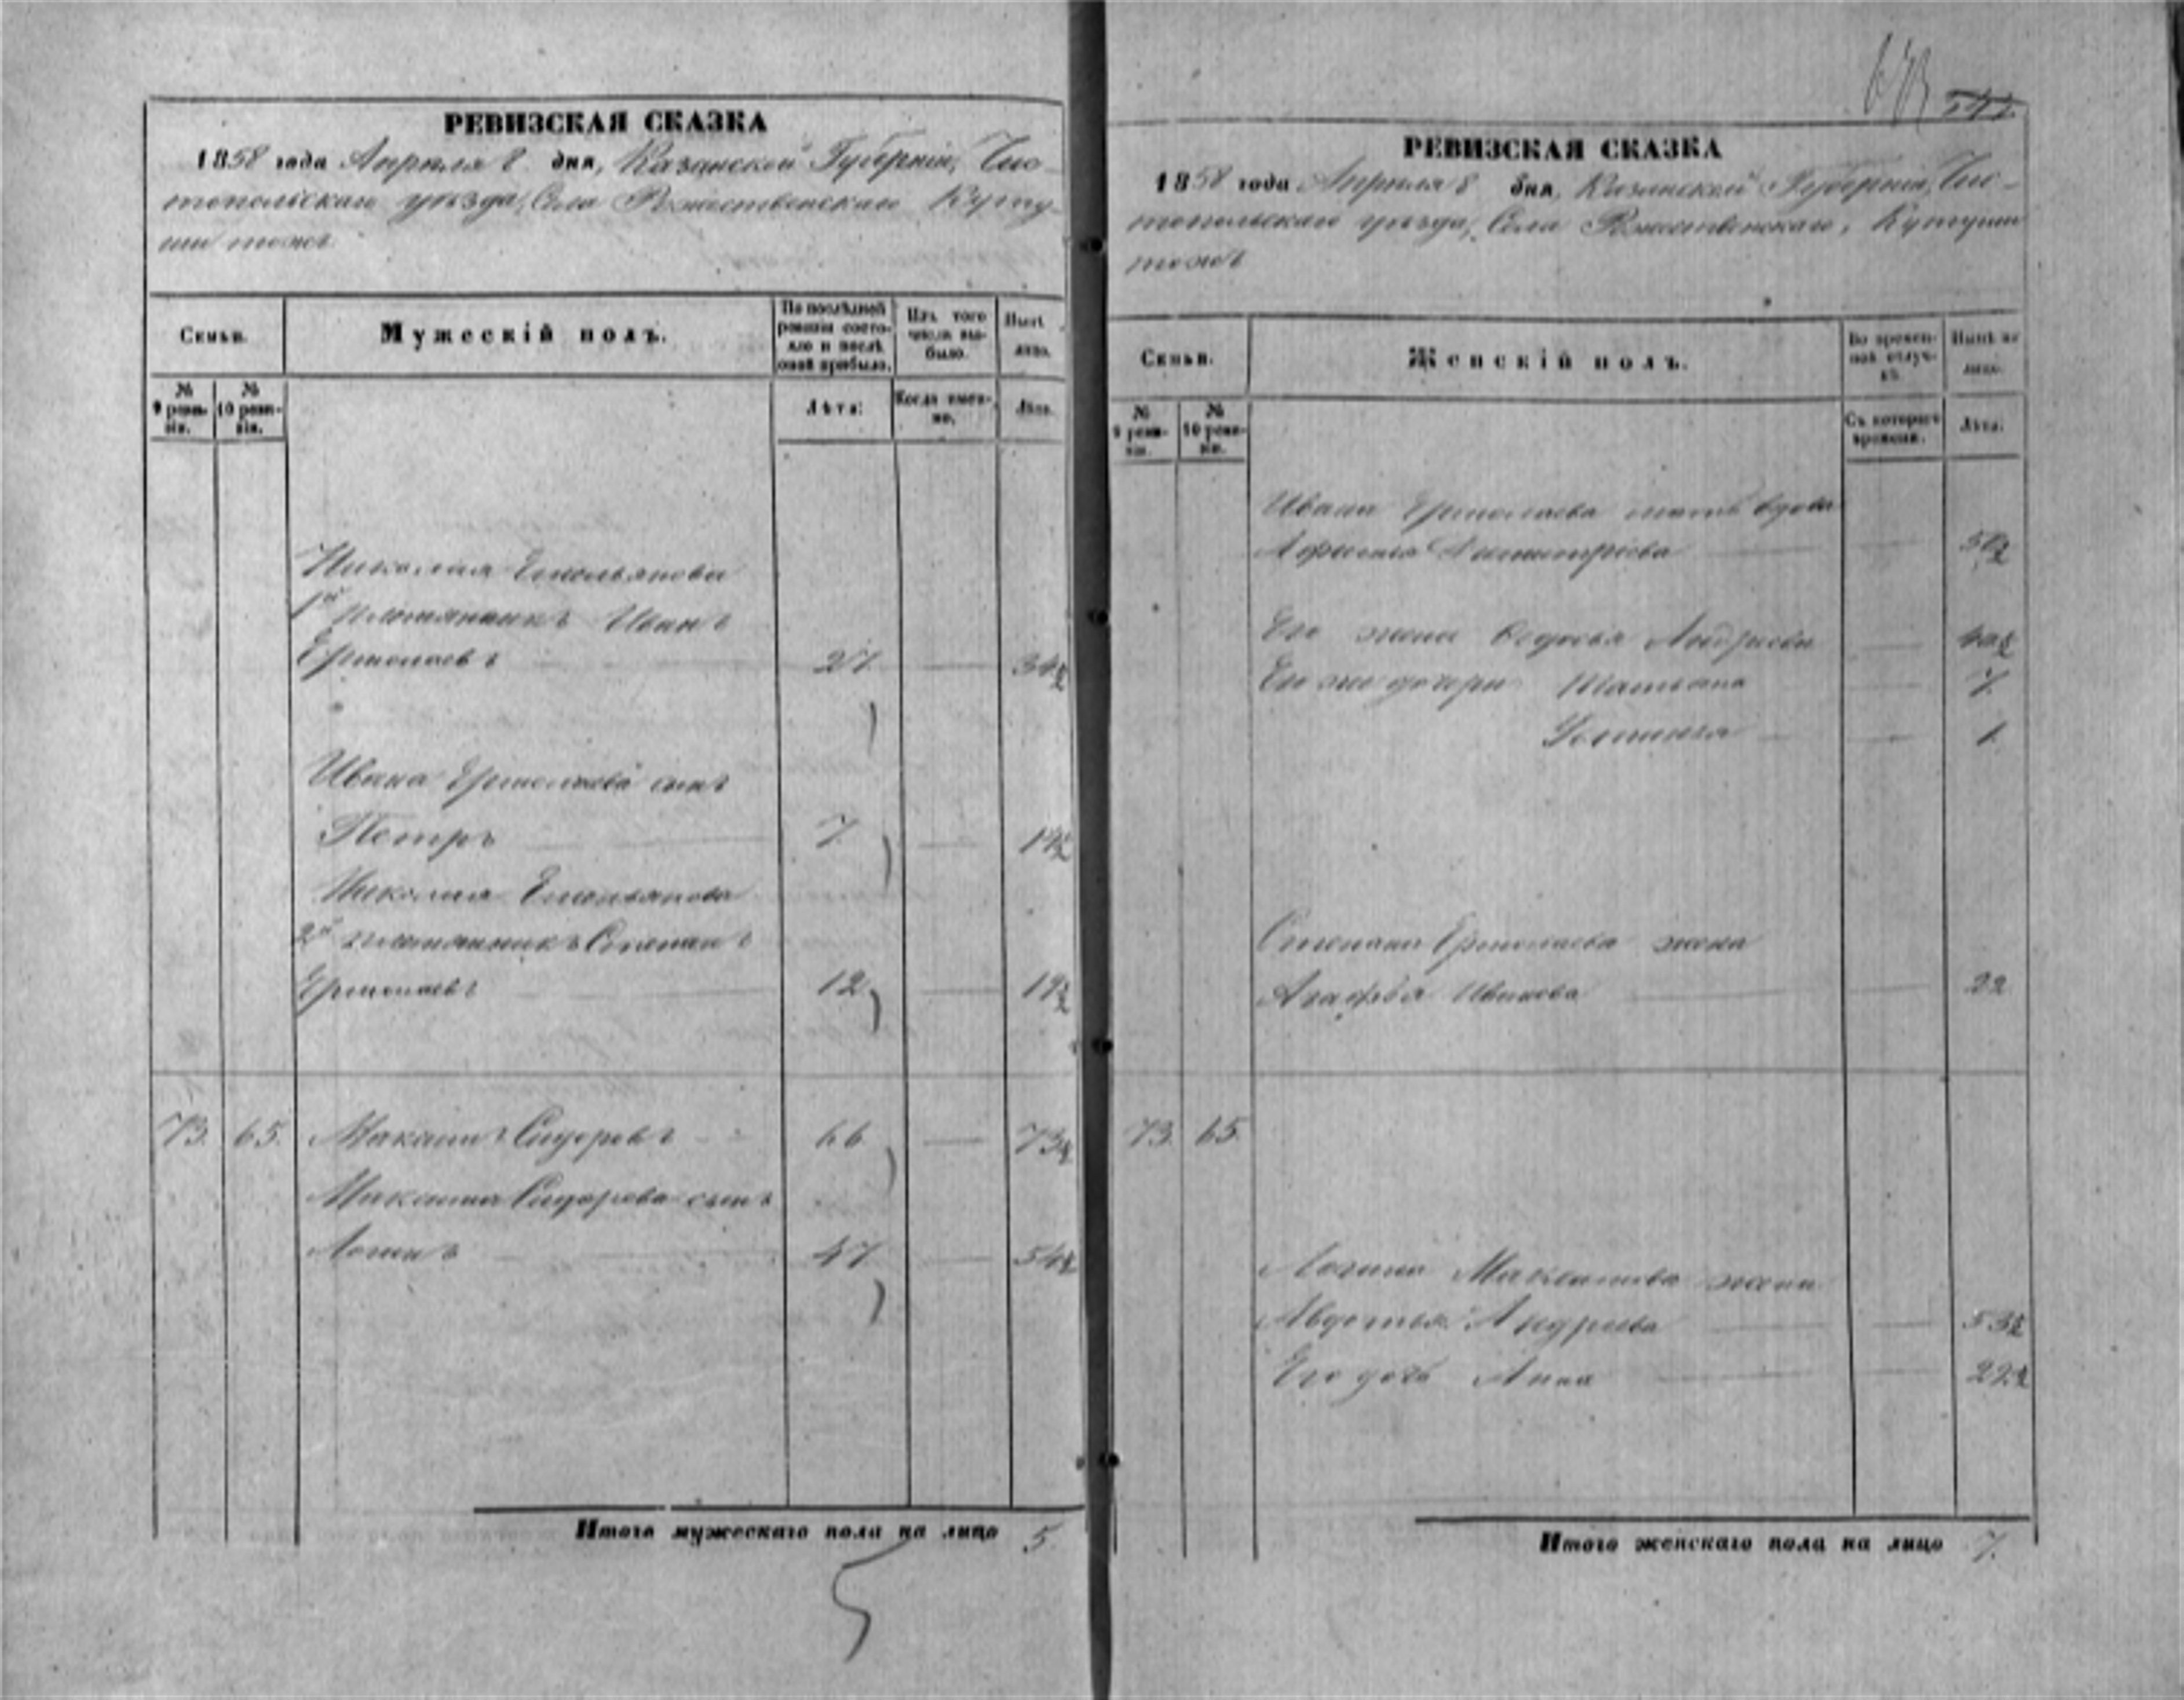 РЕВИЗСКАЯ СКАЗКА
1858 года Апреля 8 дня, Казанской Губернии, Чис-
топольскаго уѣзда, Села Рожественскаго Куту-
ши тожъ
Семьи.
Мужескій полъ.
По послѣдней ревизіи состо-
яло и послѣ оной прибыло.
Изъ того числа вы-
было.
Нынѣ
лицо.
№ 9 реви-
зіи.
№ 10 реви-
зіи.
Лѣта:
Когда имен-
но.
Лѣта.
Николая Емельянова
1й племянникъ Иванъ
Ермолаевъ 27 34½
Ивана Ермолаева сынъ
Петръ 7 14½
Николая Емельянова
2й племянникъ Степанъ
Ермолаевъ 12 19½
73. 65. Максимъ Сидоровъ 66 73½
Максима Сидорова сынъ
Логинъ 47 54½
Итого мужескаго пола на лицо 5
673
РЕВИЗСКАЯ СКАЗКА
1858 года Апреля 8 дня, Казанской Губернии, Чис-
топольскаго уѣзда, Села Рожественскаго, Кутуши
тожъ
Семьи.
Женскій полъ.
Во времен-
ной отлуч-
кѣ.
Нынѣ на
лицо.
№ 9 реви-
зіи.
№ 10 реви-
зіи.
Съ котораго
времени.
Лѣта.
Ивана Ермолаева мать вдова
Афимья Димитріева
Его жена Федосья Андреева
Его же дочери Татьяна 7
1
Степана Ермолаева жена
Агафья Иванова 22
73. 65.
Логина Максимова жена
Авдотья Андреева 53½
Его дочь Анна 22½
Итого женскаго пола на лицо 7.